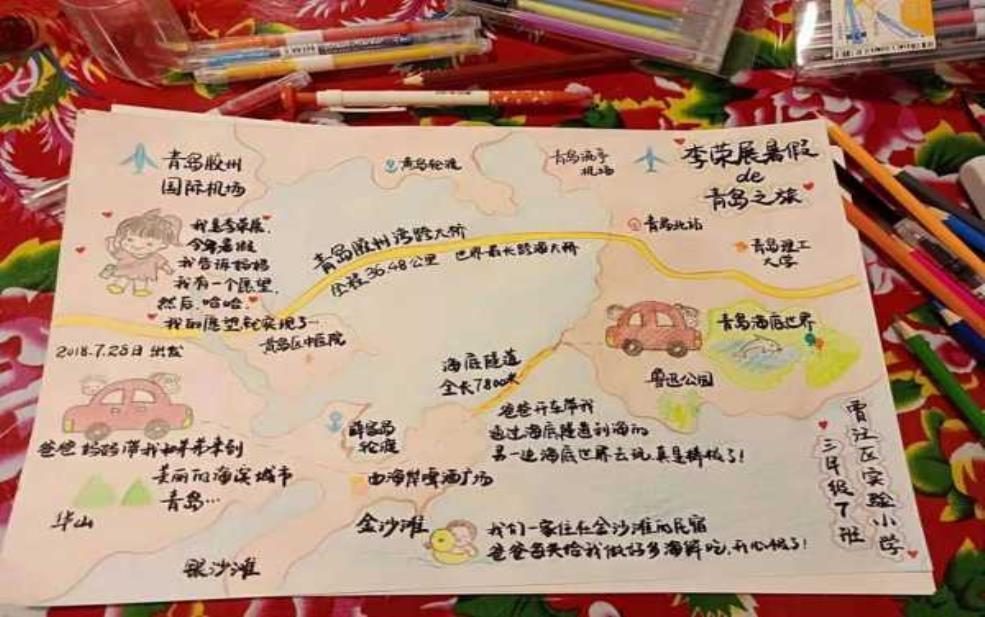 李荣展暑假
de
青岛之旅
青岛胶州
国际机场
青岛轮渡
青岛流亭
机场
我是李荣展,
今年暑假
我告诉妈妈
我有一个愿望,
然后,哈哈,
我的愿望就实现了…
青岛胶州湾跨大桥
全程36.48公里 世界最长跨海大桥
青岛北站
青岛理工
大学
2018.7.28日出发
黄岛区中医院
海底隧道
全长7800米
青岛海底世界
鲁迅公园
爸爸妈妈带我和弟弟来到
美丽的海滨城市
青岛…
薛家岛
轮渡
爸爸开车带我
通过海底隧道到海的
另一边海底世界去玩,真是棒极了!
西海岸啤酒广场
华山
银沙滩
金沙滩
我们一家住在金沙滩的民宿
爸爸每天给我做好多海鲜吃,开心极了!
江区实验小学
三年级7班